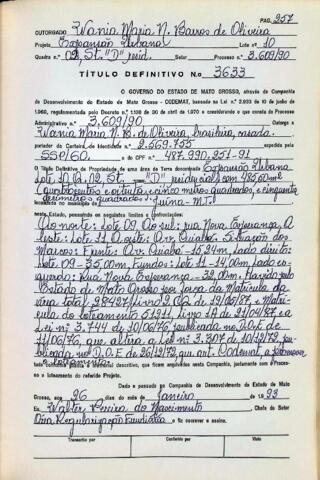 PAG. 257
OUTORGADO Vania Maria N. Barros de Oliveira
Projeto Expansão Urbana Lote nº 10
Quadra n.º 02, St. "D" resid. Processo n.º 3.609/90
TÍTULO DEFINITIVO N.º 3633
O GOVERNO DO ESTADO DE MATO GROSSO, através da Companhia
de Desenvolvimento do Estado de Mato Grosso - CODEMAT, baseado na Lei n.º 2.933 de 10 de junho
1969, regulamentado pelo Decreto n.º 1.138 de 30 de abril de 1970 e considerando o que consta do Processo
Administrativo n.º 3.609/90 Outorga a
Vania Maria N. B. de Oliveira, brasileira, casada.
portador da Carteira de Identidade n.º 2.669.755 expedida pela
SSP/GO. e do CPF n.º 487.990.251-91
O Título Definitivo de Propriedade de uma área de Terra denominada Expansão Urbana
Lote 10 Q. 02 St. "D" residencial com 485,50m²
(Quatrocentos e oitenta e cinco metros quadrados, e cinquenta
decímetros quadrados).
localizado no município de Juína - MT.
neste Estado, possuindo os seguintes limites e confrontações:
Ao norte: Lote 09. Ao sul: rua Nova Esperança. A
leste: Lote 11. A oeste: Av. Cuiabá. Situação dos
Marcos: Frente: Av. Cuiabá - 15,24m, lado direito:
Lote 09 - 35,00m, Fundos: Lote 11 - 14,00m, lado es-
querdo: Rua Nova Esperança - 32,00m. Havido pelo
Estado de Mato Grosso por força da Matrícula da
área total 28427 Livro 2 CQ de 19/06/87, e Matrí-
cula do loteamento 51911, Livro 1A de 21/04/87 e a
Lei nº 3.744 de 10/06/76, publicada no D.O.E de
11/06/76, que altera a Lei nº 3.307 de 10/12/72, pu-
blicada no D.O.E de 26/12/72, que aut. Codemat, a processar
o loteamento.
tudo conforme planta e memorial descritivo, que ficam arquivados nesta Companhia, juntamente com o Proces-
so e loteamento do referido Projeto.
Dado e passado na Companhia de Desenvolvimento do Estado de Mato
Grosso, aos 26 dias do mês de Janeiro de 1.993
Eu, Walter Pereira do Nascimento Chefe do Setor
Div. Regularização Fundiária o fiz escrever e assino.
Transcrito por
Conferido por
Visto